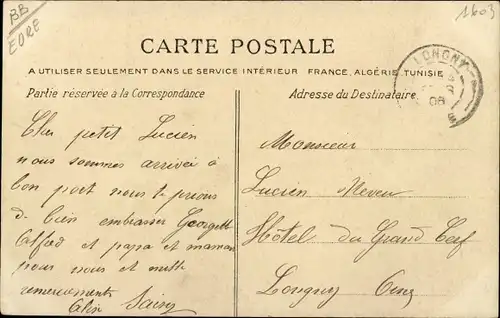 BB
EORE
1603
LONGNY
CARTE POSTALE
A UTILISER SEULEMENT DANS LE SERVICE INTÉRIEUR FRANCE, ALGÉRIE, TUNISIE
Partie réservée à la Correspondance
Adresse du Destinataire
Cher petit Lucien
nous sommes arrivés à
bon port nous te prions
de bien embrasser Georgett
Alfred et papa et maman
pour nous et mille
remerciements
Monsieur
Lucien Neveu
Hôtel du Grand Cerf
Longny Orne